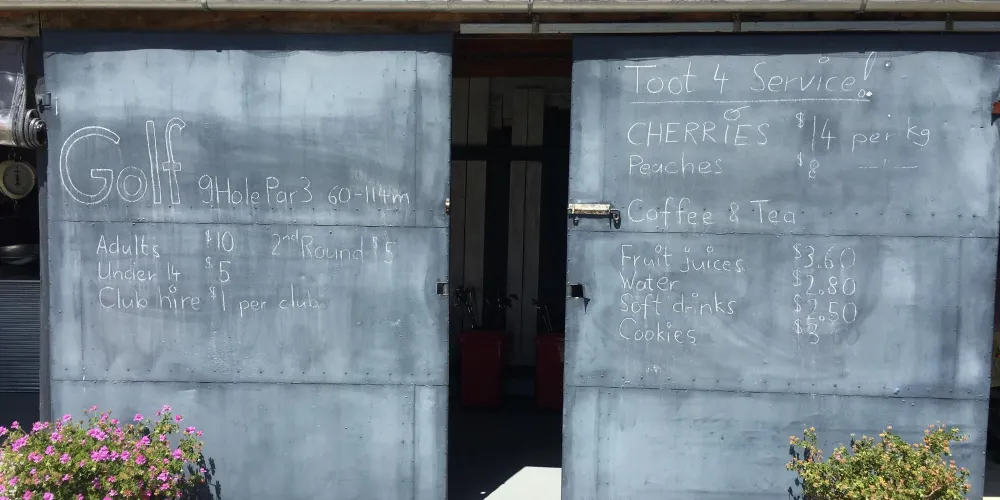 Golf 9Hole Par3 60-114m
Adults $10 2nd Round $5
Under 14 $5
Club hire $1 per club
Toot 4 Service!
CHERRIES $14 per kg
Peaches $8 —"—
Coffee & Tea
Fruit juices $3.60
Water $2.80
Soft drinks $2.50
Cookies $3